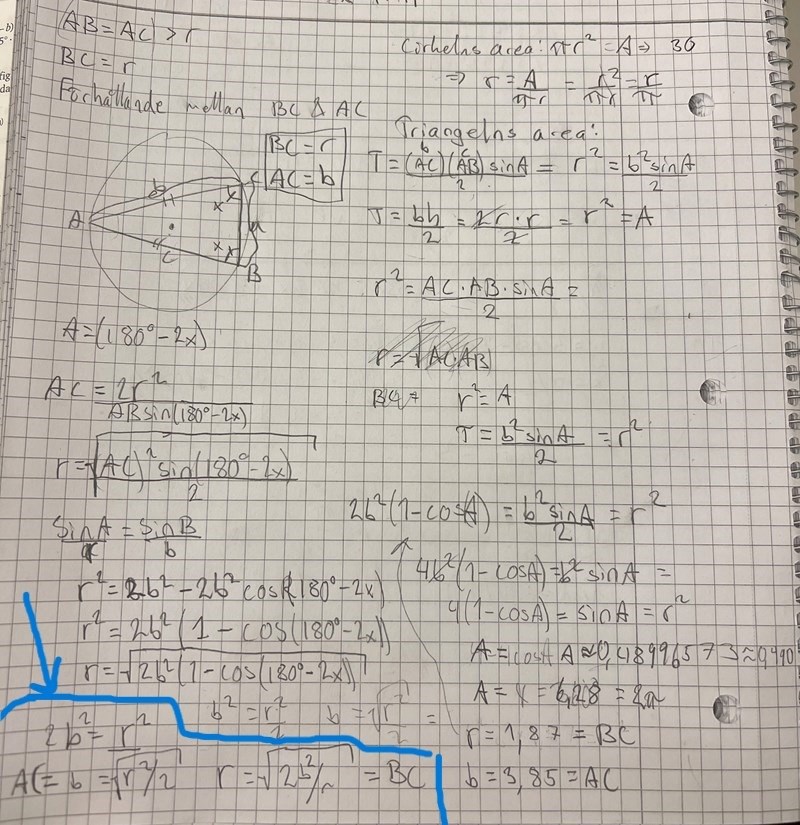 AB = AC > r
BC = r
Förhållande mellan BC & AC
BC = r
AC = b
A
b
C
x x
x x
a
c
B
A = (180° - 2x)
AC = 2r² / ABsin(180° - 2x)
r = √((AC)² sin(180° - 2x) / 2)
sinA / r = sinB / b
r² = 2b² - 2b² cos(180° - 2x)
r² = 2b² (1 - cos(180° - 2x))
r = √(2b² (1 - cos(180° - 2x)))
2b² = r²
b² = r²/2
b = √(r²/2) =
AC = b = √(r²/2)
r = √(2b²/~) = BC
Cirkelns area: πr² = A ⇒ 36
⇒ r = A/πr = r²/πr = r/π
Triangelns area:
T = (AC)(AB) sinA / 2 = r² = b² sinA / 2
T = bh/2 = 2r·r/2 = r² = A
r² = AC·AB·sinA / 2 =
r² = A
T = b² sinA / 2 = r²
2b² (1 - cosA) = b² sinA / 2 = r²
4b² (1 - cosA) = b² sinA =
4(1 - cosA) = sinA = r²
A = cosA A ≈ 0,48996573 ≈ 0,490
r = 1,87 = BC
b = 3,85 = AC